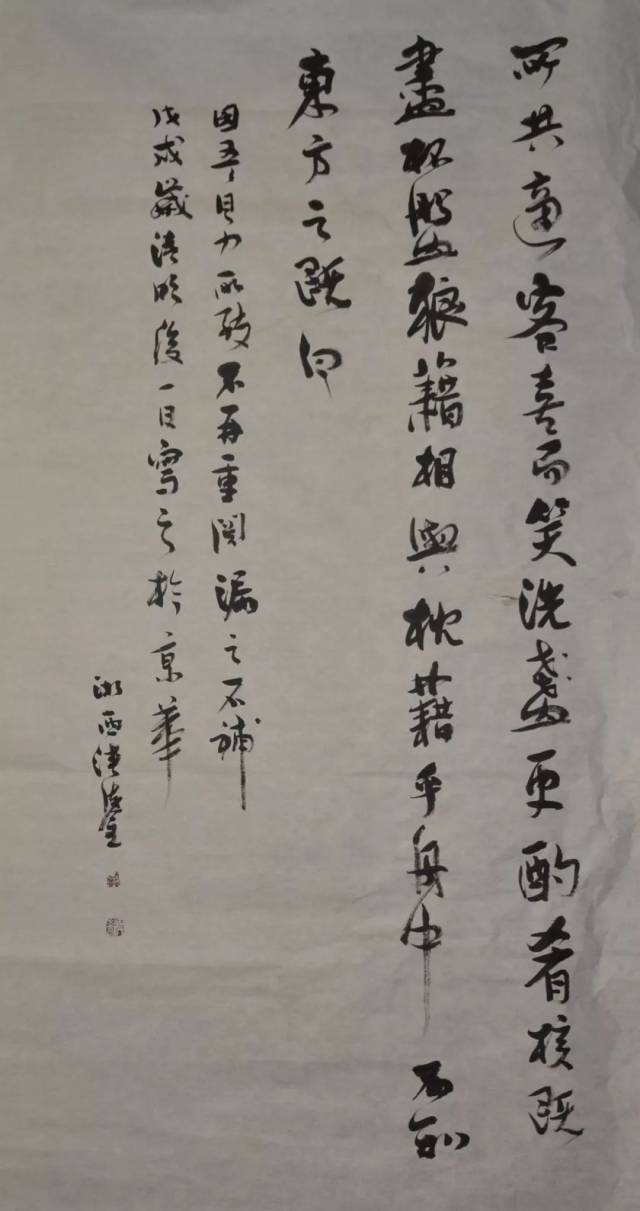 所共適客喜而笑洗盞更酌肴核既
盡杯盤狼藉相與枕藉乎舟中不知
東方之既白
因吾目力所致不再重閱漏之不補
戊戌歲清明後一日寫之於京華
湘西